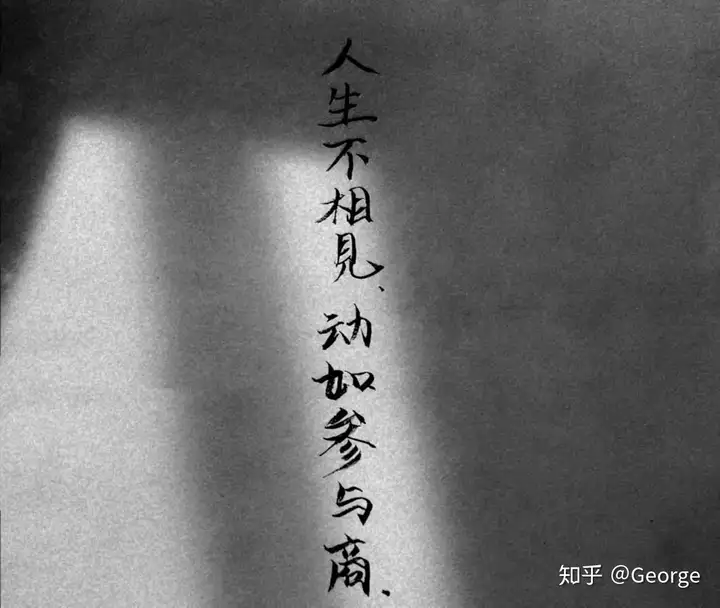 人生不相見、动如参与商.
知乎 @George